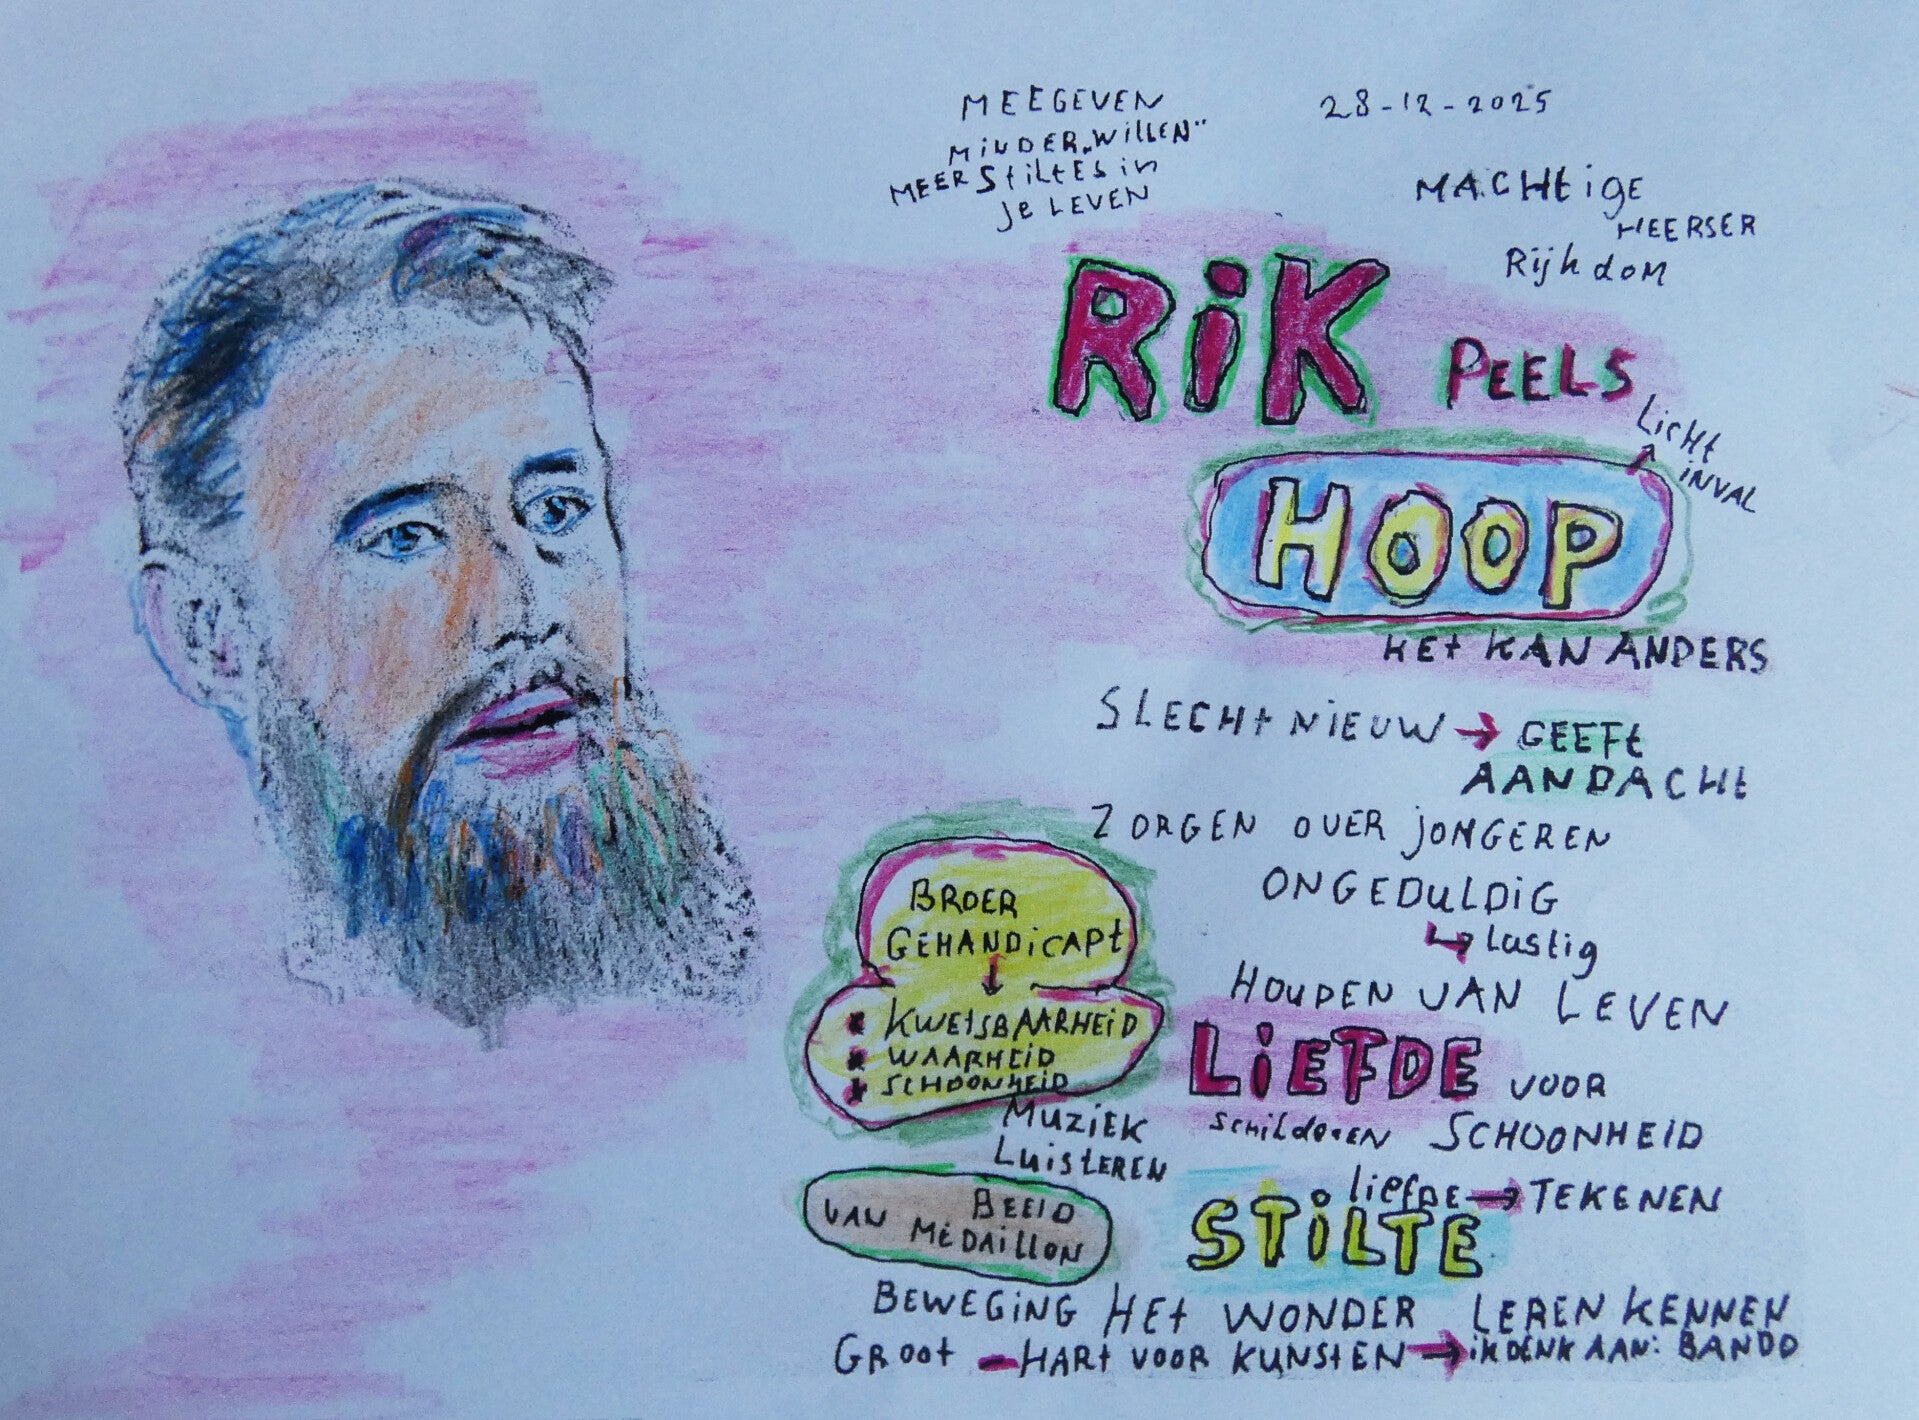 MEEGEVEN
MINDER „WILLEN"
MEER STILTES in
je LEVEN
28-12-2025
MACHtige
HEERSER
Rijkdom
RiK PEELS
LicHt
inval
HOOP
HEt KAN ANDERS
SLECHt NiEUW → GEEFt
AANDACHt
ZORGEN OVER jONGEREN
ONGEDULDiG
↳ Lastig
HOUDEN VAN LEVEN
BROER
GEHANDiCAPt
↓
KWEtSBAARHEiD
WAARHEiD
SCHOONHEiD
LiEFDE VOOR
SCHiLDEREN SCHOONHEiD
MUZiEK
LuistEREN
liefDE → TEKENEN
STiLTE
BEELD
VAN MEDAiLLON
BEWEGiNG HEt WONDER LEREN KENNEN
GROOt - HARt VOOR KUNStEN → iK DENK AAN: BANDO